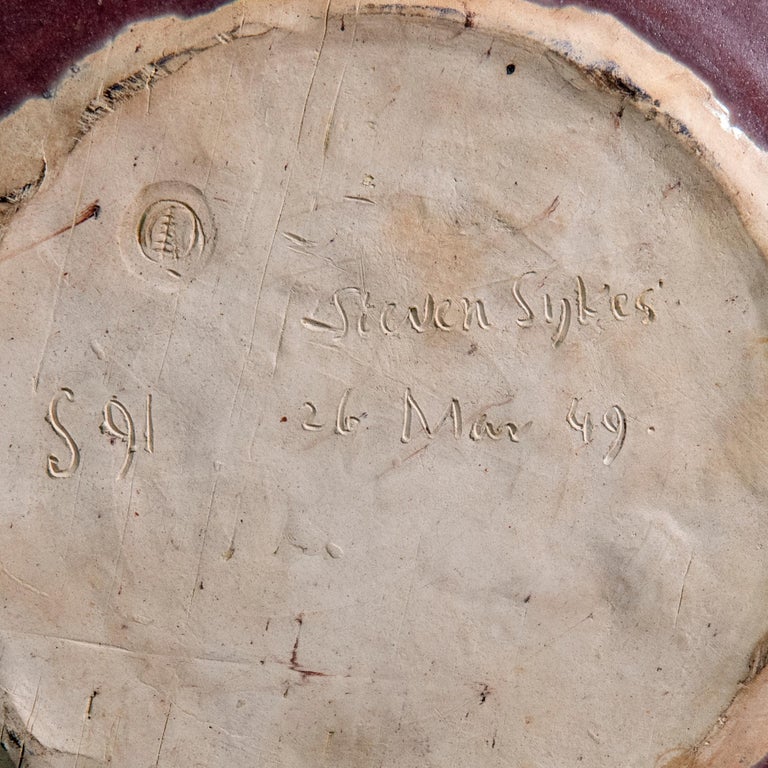 Steven Sykes
S 91 26 Mar 49.